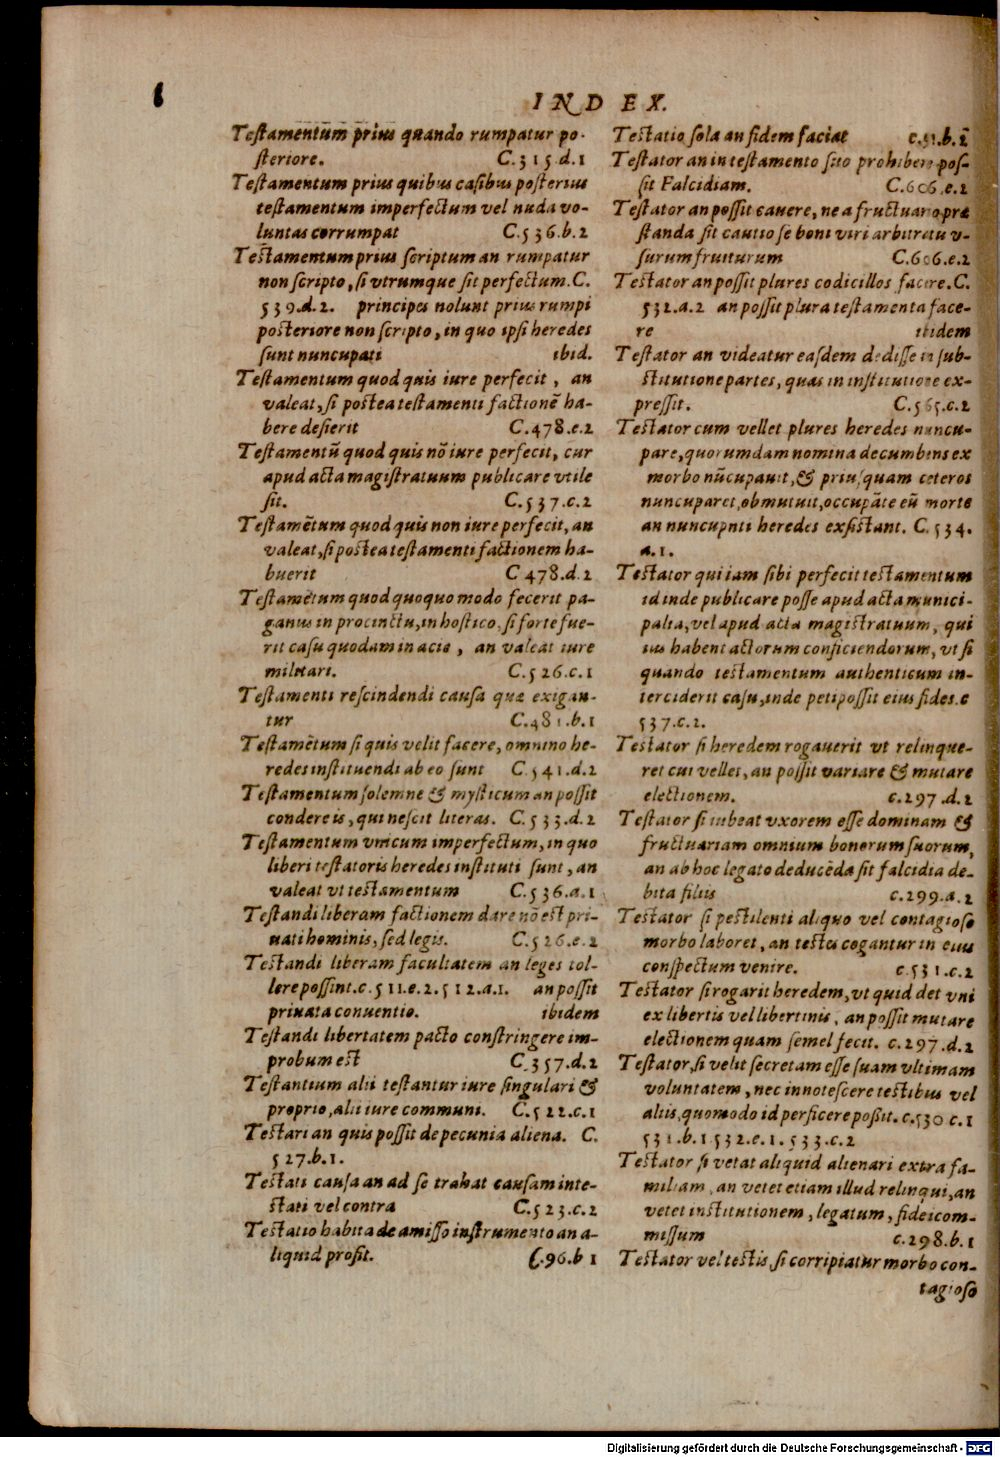 INDEX.
Testamentum prius quando rumpatur po-
steriore. C.315.d.1
Testamentum prius quibus casibus posterius
testamentum imperfectum vel nuda vo-
luntas corrumpat C.536.b.2
Testamentum prius scriptum an rumpatur
non scripto, si vtrumque sit perfectum.C.
539.d.2. principes nolunt prius rumpi
posteriore non scripto, in quo ipsi heredes
sunt nuncupati ibid.
Testamentum quod quis iure perfecit, an
valeat, si postea testamenti factionē ha-
bere desierit C.478.e.2
Testamentū quod quis nō iure perfecit, cur
apud acta magistratuum publicare vtile
sit. C.537.c.2
Testamētum quod quis non iure perfecit, an
valeat, si postea testamenti factionem ha-
buerit C 478.d.2
Testamētum quod quoquo modo fecerit pa-
ganus in procinctu, in hostico, si forte fue-
rit casu quodam in acie, an valeat iure
militari. C.526.c.1
Testamenti rescindendi causa quæ exigan-
tur C.481.b.1
Testamētum si quis velit facere, omnino he-
redes instituendi ab eo sunt C.541.d.2
Testamentum solemne & mysticum an possit
condere is, qui nescit literas. C.533.d.2
Testamentum vnicum imperfectum, in quo
liberi testatoris heredes instituti sunt, an
valeat vt testamentum C.536.a.1
Testandi liberam factionem dare nō est pri-
uati hominis, sed legis. C.526.e.2
Testandi liberam facultatem an leges tol-
lere possint.c.511.e.2.512.a.1. an possit
priuata conuentio. ibidem
Testandi libertatem pacto constringere im-
probum est C.357.d.2
Testantium alii testantur iure singulari &
proprio, alii iure communi. C.522.c.1
Testari an quis possit de pecunia aliena. C.
527.b.1.
Testati causa an ad se trahat causam inte-
stati vel contra C.523.c.2
Testatio habita de amisso instrumento an a-
liquid prosit. C.96.b 1
Testatio sola an fidem faciat c.51.b.2
Testator an in testamento suo prohibere pos-
sit Falcidiam. C.606.e.2
Testator an possit cauere, ne a fructuario præ
standa sit cautio se boni viri arbitratu v-
surum fruiturum C.606.e.2
Testator an possit plures codicillos facere.C.
532.a.2 an possit plura testamenta face-
re ibidem
Testator an videatur easdem dedisse in sub-
stitutione partes, quas in institutione ex-
pressit. C.565.c.2
Testator cum vellet plures heredes nuncu-
pare, quorumdam nomina decumbens ex
morbo nūcupauit, & priusquam ceteros
nuncuparet, obmutuit, occupāte eū morte
an nuncupnti heredes exsistant. C.534.
a.1.
Testator qui iam sibi perfecit testamentum
id inde publicare posse apud acta munici-
palia, vel apud acta magistratuum, qui
ius habent actorum conficiendorum, vt si
quando testamentum authenticum in-
terciderit casu, inde peti possit eius fides.c
537.c.2.
Testator si heredem rogauerit vt relinque-
ret cui vellet, an possit variare & mutare
electionem. c.297.d.2
Testator si iubeat vxorem esse dominam &
fructuariam omnium bonorum suorum,
an ab hoc legato deducēda sit falcidia de-
bita filiis c.299.a.2
Testator si pestilenti aliquo vel contagioso
morbo laboret, an testes cogantur in eius
conspectum venire. c.531.c.2
Testator si rogarit heredem, vt quid det vni
ex libertis vel libertinis, an possit mutare
electionem quam semel fecit. c.297.d.2
Testator, si velit secretam esse suam vltimam
voluntatem, nec innotescere testibus vel
aliis, quomodo id perficere poßit.c.530 c.1
531.b.1 532.e.1.533.c.2
Testator si vetat aliquid alienari extra fa-
miliam, an vetet etiam illud relinqui, an
vetet institutionem, legatum, fideicom-
missum c.298.b.1
Testator vel testis, si corripiatur morbo con-
tagioso
Digitalisierung gefördert durch die Deutsche Forschungsgemeinschaft - DFG